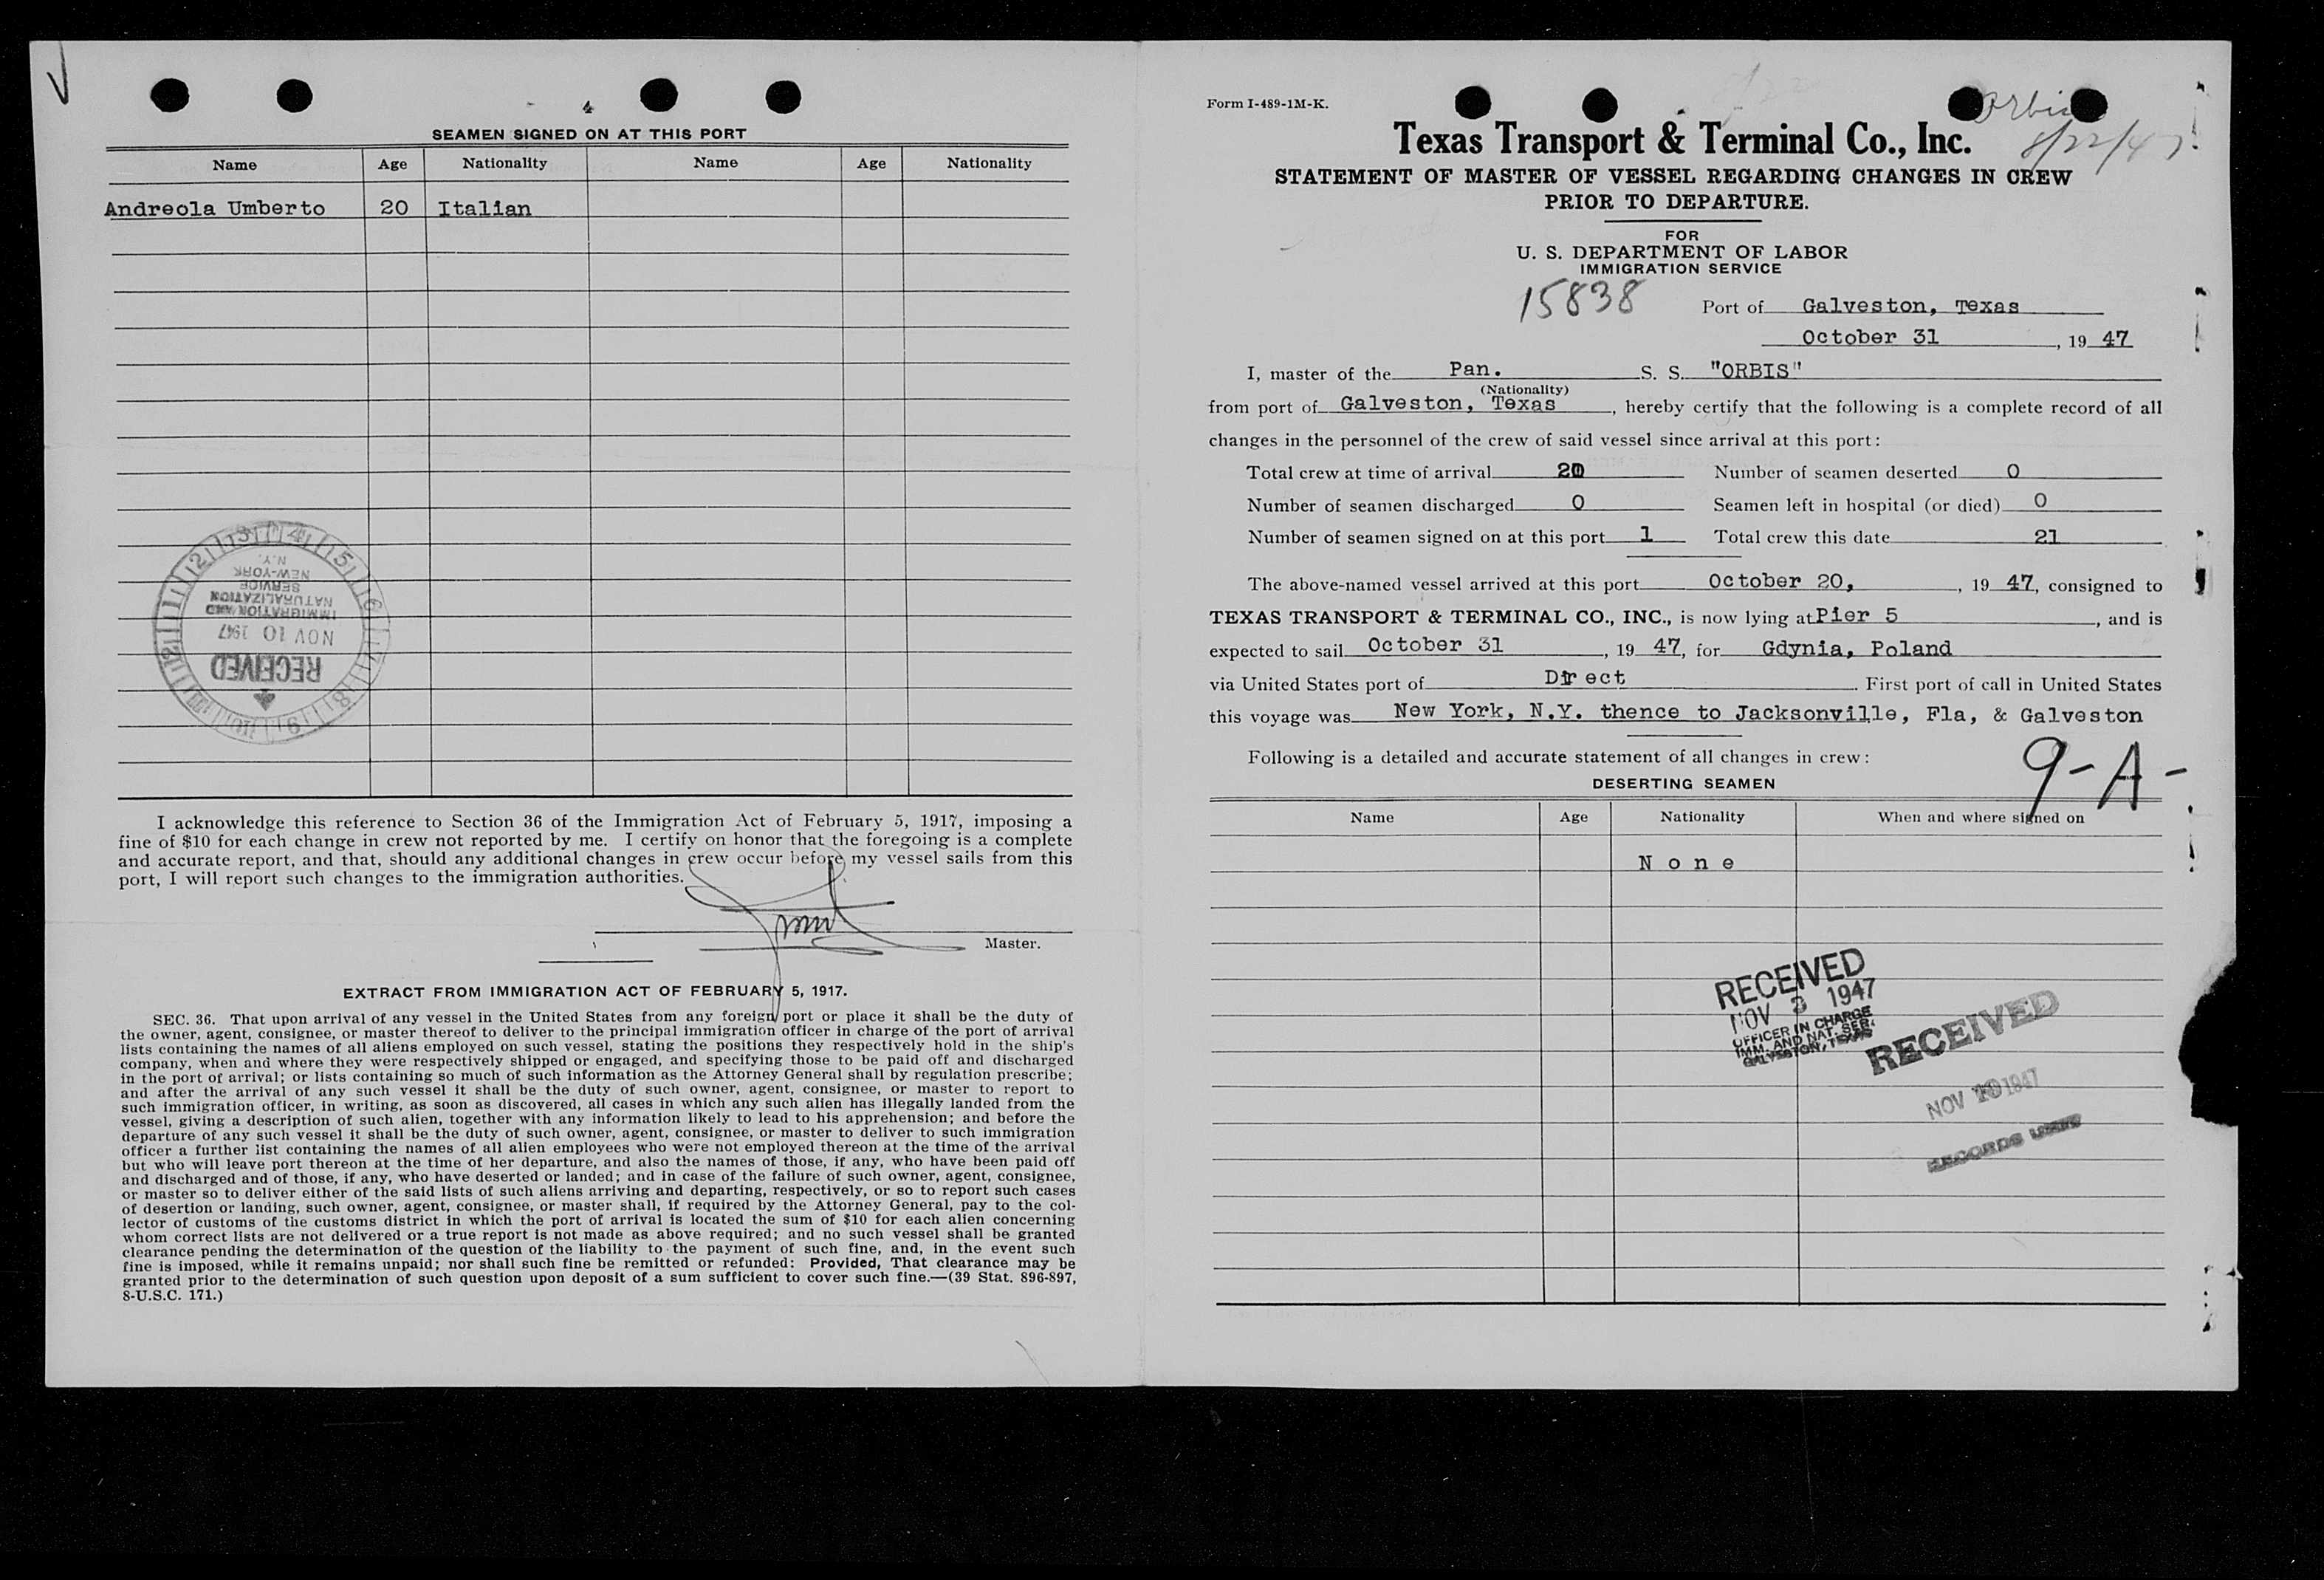 4
SEAMEN SIGNED ON AT THIS PORT
Name Age Nationality Name Age Nationality
Andreola Umberto 20 Italian
RECEIVED
NOV 10 1947
IMMIGRATION AND
NATURALIZATION
SERVICE
NEW-YORK
N.Y.
I acknowledge this reference to Section 36 of the Immigration Act of February 5, 1917, imposing a
fine of $10 for each change in crew not reported by me. I certify on honor that the foregoing is a complete
and accurate report, and that, should any additional changes in crew occur before my vessel sails from this
port, I will report such changes to the immigration authorities.
Master.
EXTRACT FROM IMMIGRATION ACT OF FEBRUARY 5, 1917.
SEC. 36. That upon arrival of any vessel in the United States from any foreign port or place it shall be the duty of
the owner, agent, consignee, or master thereof to deliver to the principal immigration officer in charge of the port of arrival
lists containing the names of all aliens employed on such vessel, stating the positions they respectively hold in the ship's
company, when and where they were respectively shipped or engaged, and specifying those to be paid off and discharged
in the port of arrival; or lists containing so much of such information as the Attorney General shall by regulation prescribe;
and after the arrival of any such vessel it shall be the duty of such owner, agent, consignee, or master to report to
such immigration officer, in writing, as soon as discovered, all cases in which any such alien has illegally landed from the
vessel, giving a description of such alien, together with any information likely to lead to his apprehension; and before the
departure of any such vessel it shall be the duty of such owner, agent, consignee, or master to deliver to such immigration
officer a further list containing the names of all alien employees who were not employed thereon at the time of the arrival
but who will leave port thereon at the time of her departure, and also the names of those, if any, who have been paid off
and discharged and of those, if any, who have deserted or landed; and in case of the failure of such owner, agent, consignee,
or master so to deliver either of the said lists of such aliens arriving and departing, respectively, or so to report such cases
of desertion or landing, such owner, agent, consignee, or master shall, if required by the Attorney General, pay to the col-
lector of customs of the customs district in which the port of arrival is located the sum of $10 for each alien concerning
whom correct lists are not delivered or a true report is not made as above required; and no such vessel shall be granted
clearance pending the determination of the question of the liability to the payment of such fine, and, in the event such
fine is imposed, while it remains unpaid; nor shall such fine be remitted or refunded: Provided, That clearance may be
granted prior to the determination of such question upon deposit of a sum sufficient to cover such fine.—(39 Stat. 896-897,
8-U.S.C. 171.)
Form I-489-1M-K.
Orbis
8/22/47
Texas Transport & Terminal Co., Inc.
STATEMENT OF MASTER OF VESSEL REGARDING CHANGES IN CREW
PRIOR TO DEPARTURE.
FOR
U. S. DEPARTMENT OF LABOR
IMMIGRATION SERVICE
15838
Port of Galveston, Texas
October 31, 19 47
I, master of the Pan. S. S. "ORBIS"
(Nationality)
from port of Galveston, Texas, hereby certify that the following is a complete record of all
changes in the personnel of the crew of said vessel since arrival at this port:
Total crew at time of arrival 20 Number of seamen deserted 0
Number of seamen discharged 0 Seamen left in hospital (or died) 0
Number of seamen signed on at this port 1 Total crew this date 21
The above-named vessel arrived at this port October 20, , 19 47, consigned to
TEXAS TRANSPORT & TERMINAL CO., INC., is now lying at Pier 5, and is
expected to sail October 31, 19 47, for Gdynia, Poland
via United States port of Direct. First port of call in United States
this voyage was New York, N.Y. thence to Jacksonville, Fla, & Galveston
Following is a detailed and accurate statement of all changes in crew:
9-A-
DESERTING SEAMEN
Name Age Nationality When and where signed on
None
RECEIVED
NOV 3 1947
OFFICER IN CHARGE
IMM. AND NAT. SER.
GALVESTON, TEXAS
RECEIVED
NOV 10 1947
RECORDS